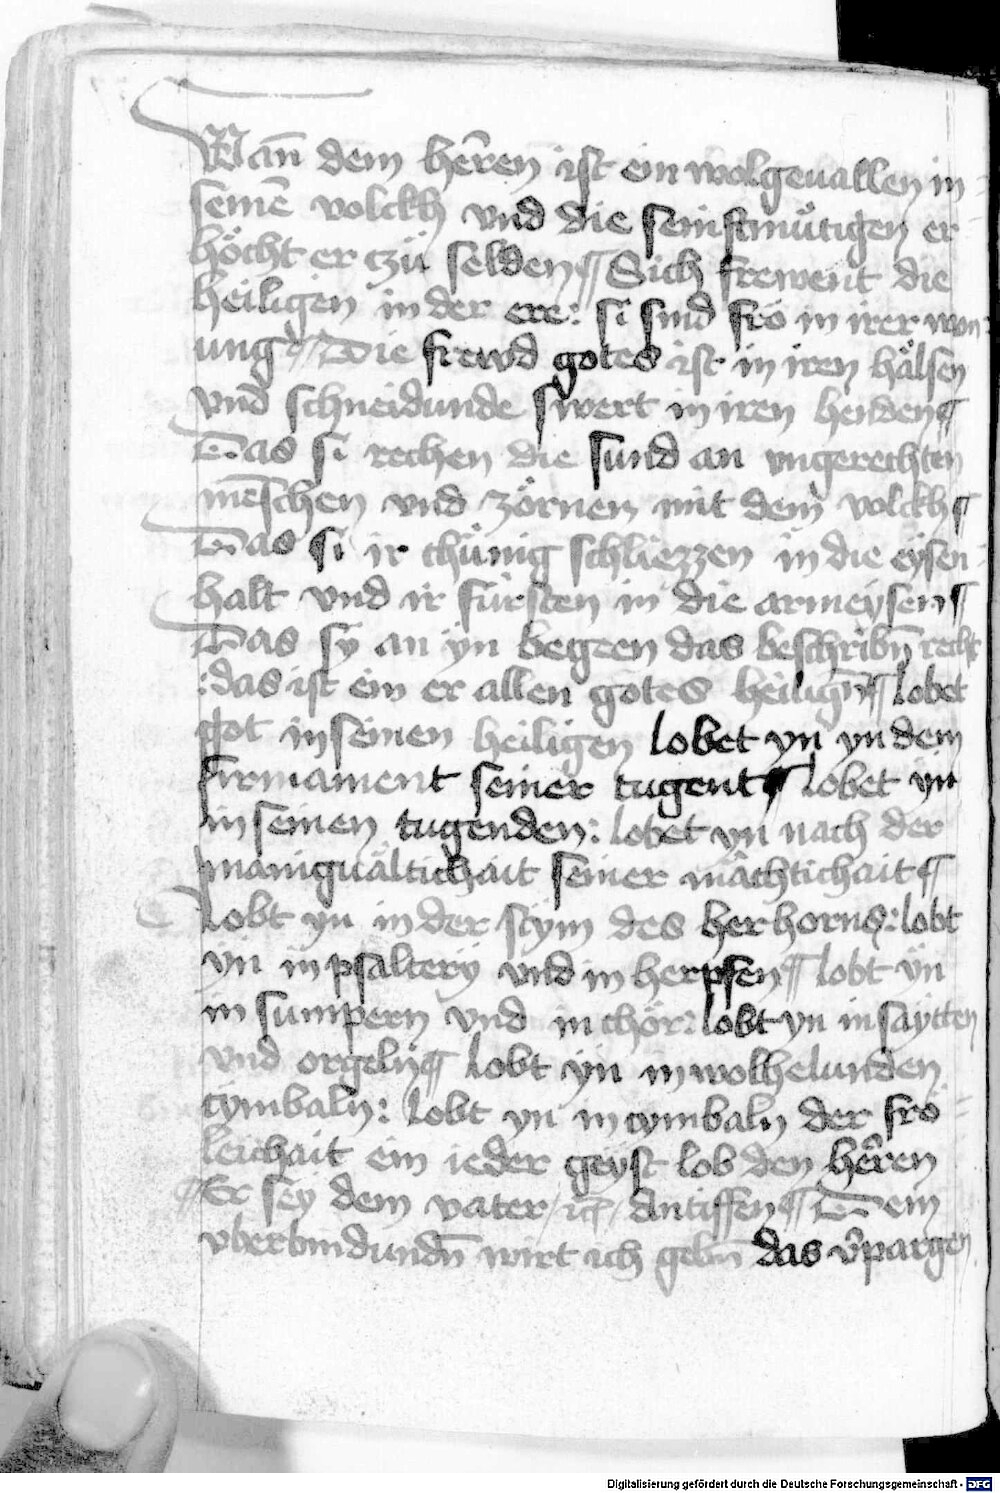 Wan̄ dem her̄en ist ein wolgeuallen in
seinē volckh vnd die senftmuͤtigen er
hoͤcht er czü selden ¶ Sich frewent die
heiligen in der ere: si sind fro in irer won
ung ¶ Die frewd gotes ist in iren haͤlsen
vnd schneidunde swert in iren henden ¶
Das si rechen die sund an vngerechten
mēschen vnd zoͤrnen mit dem volckh ¶
Das si ir chünig schliezzen in die eysen
halt vnd ir fürsten in die armeysen ¶
Das sy an yn begeen das beschribn̄ recht
: das ist ein er allen gotes heilign̄ ¶ lobet
got in seinen heiligen lobet yn yn dem
firmament seiner tugent ¶ lobet yn
in seinen tugenden: lobet yn nach der
maniguältichait seiner mächtichait ¶
lobt yn in der stym des herhorns: lobt
yn in psaltery vnd in herpfen ¶ lobt yn
in sumpern vnd in chör: lobt yn in saytten
vnd orgeln ¶ lobt yn in wolhelunden
cymbaln: lobt yn in cymbaln der fro
leichait ein ieder geyst lob den her̄en
¶ Er sey dem vater / ic̄ / Antiffen ¶ Dem
vberbindundn̄ wirt ich gebn̄ das v̄pargen
Digitalisierung gefördert durch die Deutsche Forschungsgemeinschaft - DFG